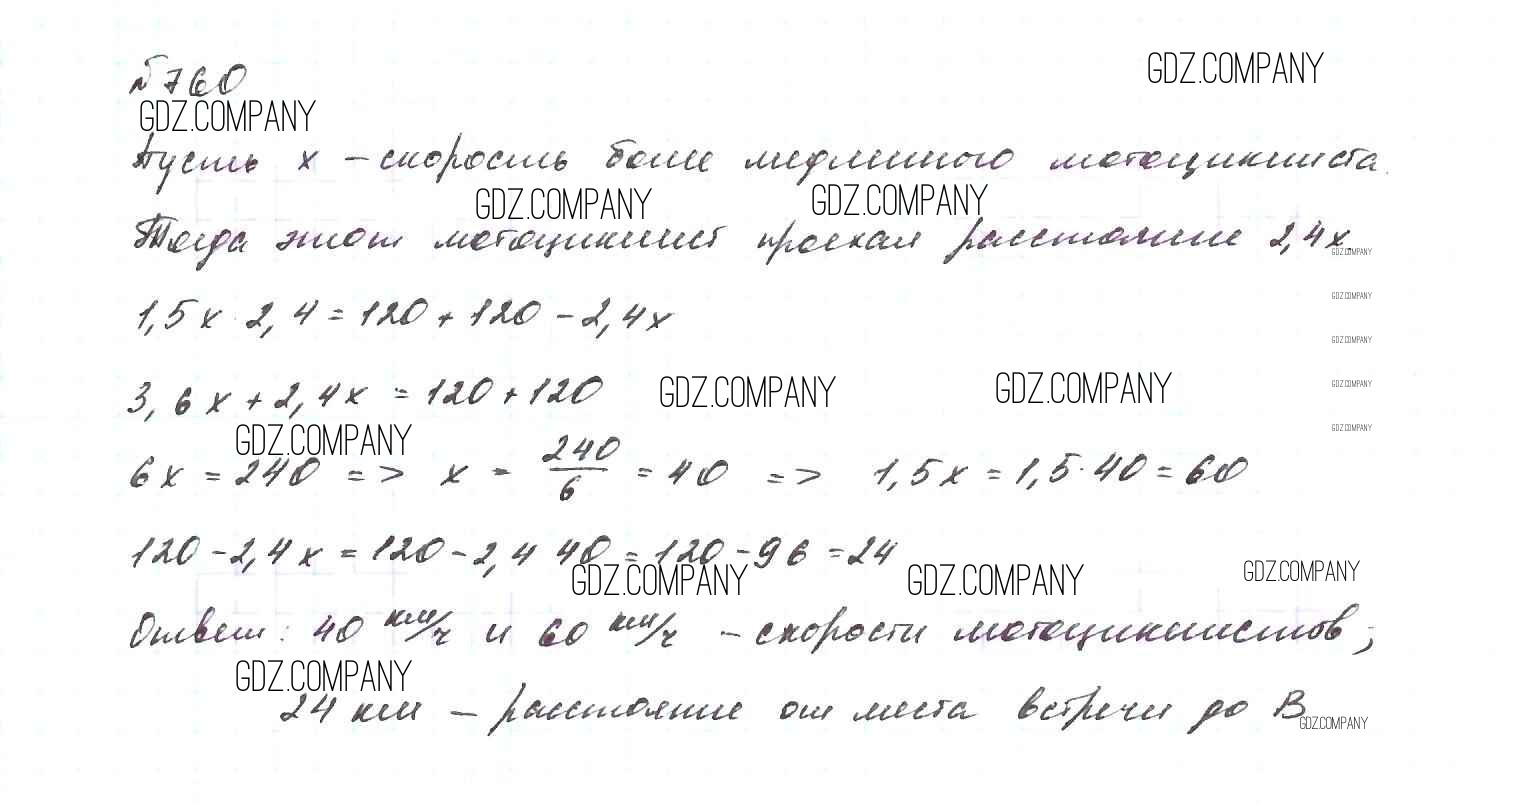 №760
GDZ.COMPANY
GDZ.COMPANY
Пусть x – скорость более медленного мотоциклиста.
GDZ.COMPANY
GDZ.COMPANY
Тогда этот мотоциклист проехал расстояние 2,4x.
GDZ.COMPANY
GDZ.COMPANY
1,5x · 2,4 = 120 + 120 – 2,4x
GDZ.COMPANY
3,6x + 2,4x = 120 + 120
GDZ.COMPANY
GDZ.COMPANY
GDZ.COMPANY
GDZ.COMPANY
GDZ.COMPANY
6x = 240 => x = 240/6 = 40 => 1,5x = 1,5·40 = 60
120 – 2,4x = 120 – 2,4 40 = 120 – 96 = 24
GDZ.COMPANY
GDZ.COMPANY
GDZ.COMPANY
Ответ: 40 км/ч и 60 км/ч – скорости мотоциклистов;
GDZ.COMPANY
24 км – расстояние от места встречи до В
GDZ.COMPANY